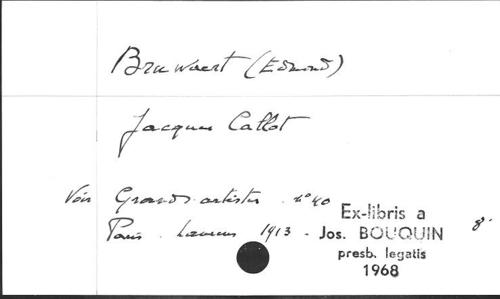 Bruwaert (Edmond)
Jacques Callot
Voir Grands artistes. n° 40
Paris. Laurens 1913 - 8°
Ex-libris a
Jos. BOUQUIN
presb. legatis
1968